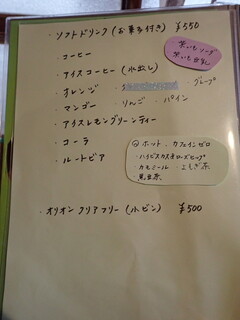 ・ソフトドリンク(お菓子付き) ¥550
・コーヒー
・アイスコーヒー(水出し)
・オレンジ グレープ
・マンゴー ・りんご ・パイン
・アイスレモングリーンティー
・コーラ
・ルートビア
ホット ・カフェインゼロ
・ハイビスカス&ローズヒップ
・カモミール ・よもぎ茶
黒豆茶
・オリオンクリアフリー(小ビン) ¥500